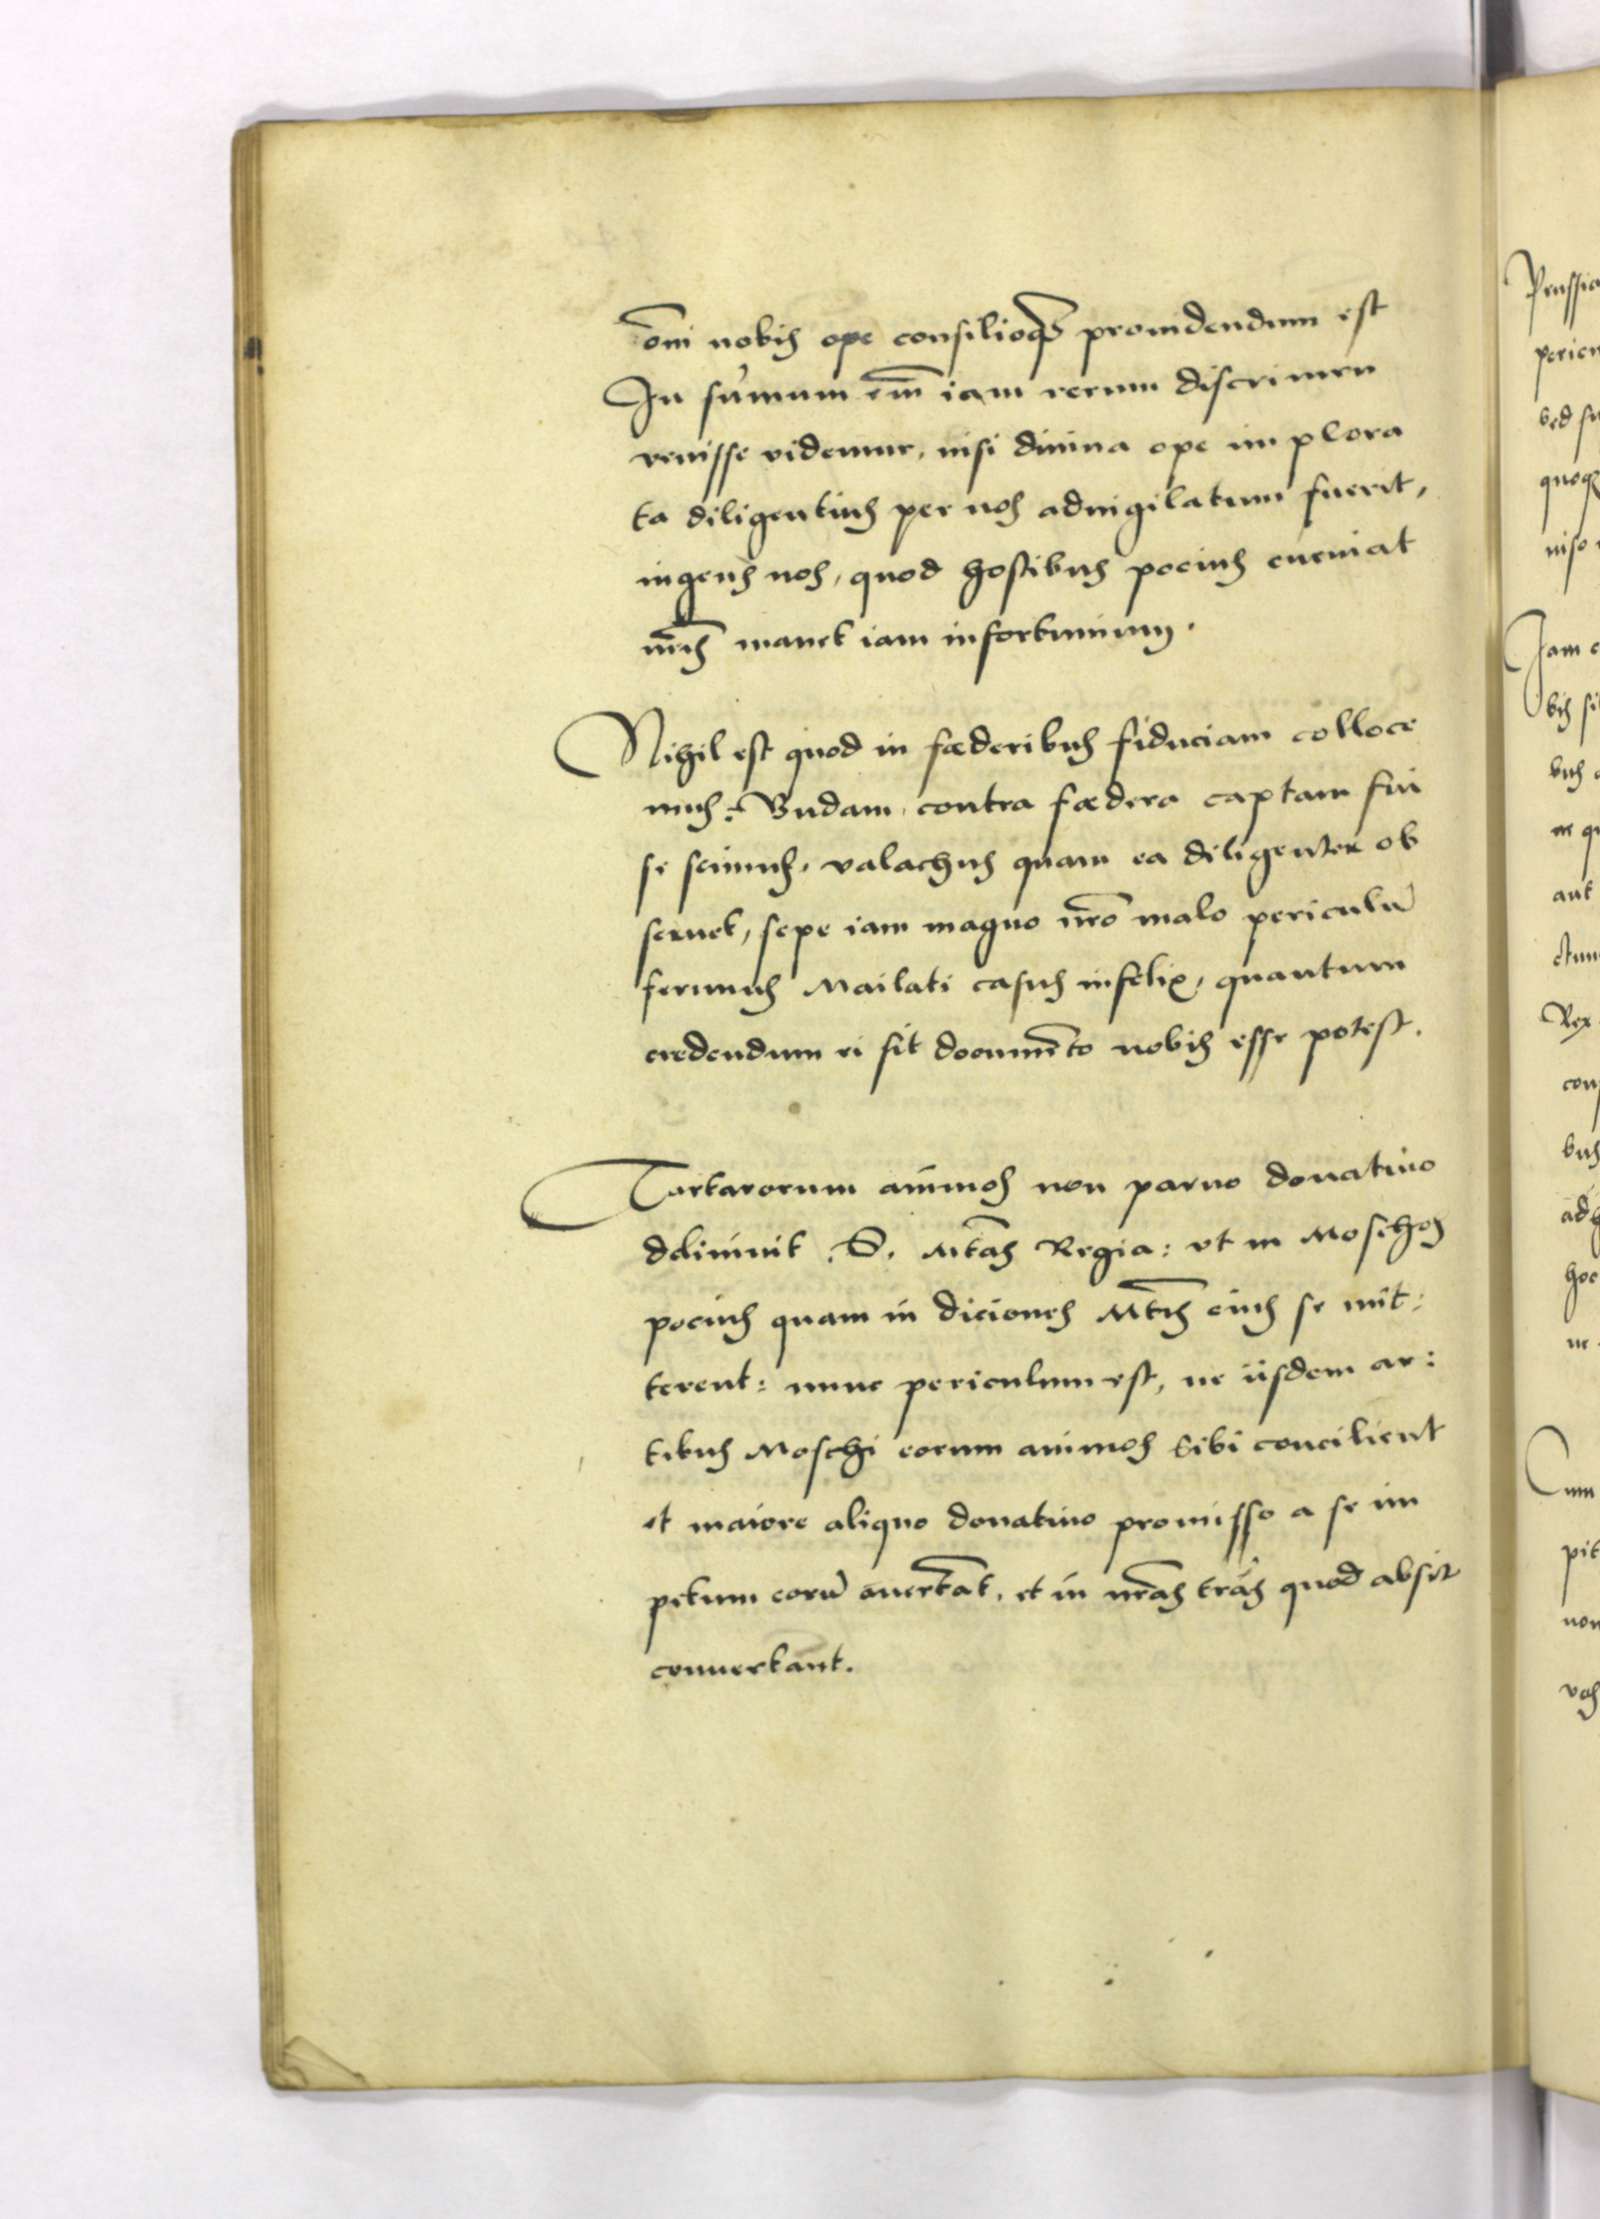 om̄i nobis ope consilioqꝫ prouidendum est
In sūmum em̄ iam rerum discrimen
venisse videmur, nisi diuina ope implora
ta diligentius per nos aduigilatum fuerit,
ingens nos, quod hostibus pocius eueniat
manet iam infortunium.
Nihil est quod in fœderibus fiduciam colloce
mus: Budam contra fœdera captam fuis
se scimus, valachus quam ea diligenter ob
seruet, sepe iam magno nr̄o malo periculū
ferimus Mailati casus infelix, quantum
credendum ei sit documēto nobis esse potest.
Tartarorum animos non paruo donatiuo
deliniuit S. Mtās Regia: vt in Moschos
pocius quam in diciones Mt̄is eius se mit:
terent: nunc periculum est, ne iisdem ar:
tibus Moschi eorum animos sibi concilient
et maiore aliquo donatiuo promisso a se im
petum eorū auertāt, et in nr̄as trās quod absit
conuertant.
Prussia
ved
quoqꝫ
Iam
bis
bus
aut
ctum
Rex
bus
hoc
ne
Cum
pit
non
vos